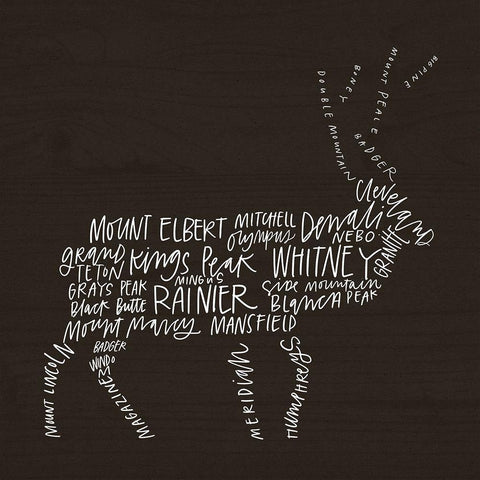 BIG PINE
MOUNT PEALE
BONEY
DOUBLE MOUNTAIN
BADGER
Cleveland
MOUNT ELBERT MITCHELL Denali
Olympus NEBO
GRANITE
grand TETON Kings Peak WHITNEY
MINGUS
GRAYS PEAK RAINIER Side mountain
Black Butte BLANCA PEAK
Mount Marcy MANSFIELD
BADGER
WINDOM
MOUNT LINCOLN
MAGAZINE
MERIDIAN
Humphreys